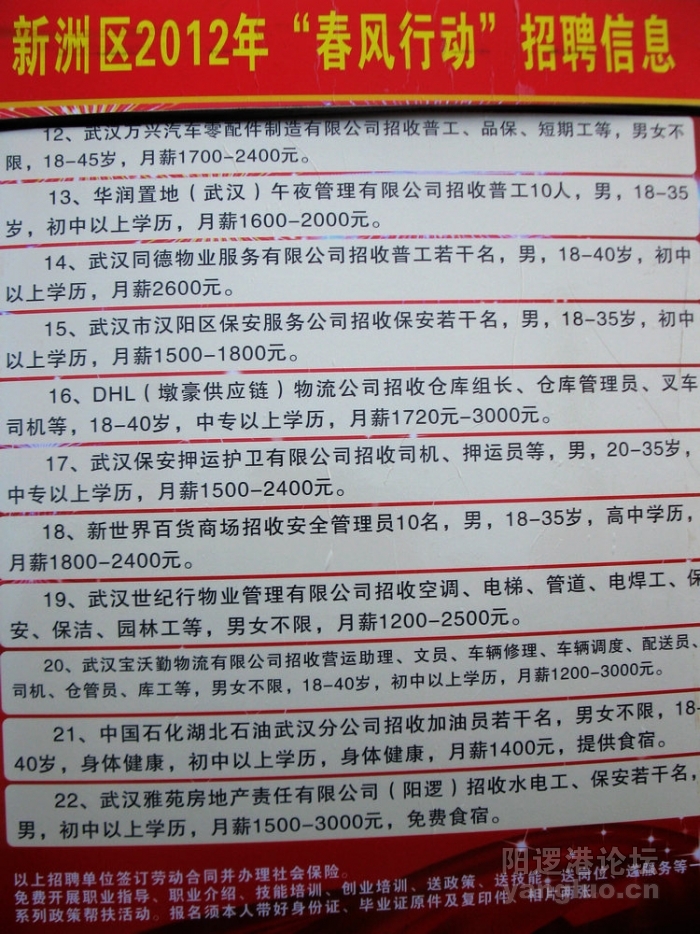 新洲区2012年“春风行动”招聘信息
12、武汉万兴汽车零配件制造有限公司招收普工、品保、短期工等，男女不
限，18-45岁，月薪1700-2400元。
13、华润置地（武汉）午夜管理有限公司招收普工10人，男，18-35
岁，初中以上学历，月薪1600-2000元。
14、武汉同德物业服务有限公司招收普工若干名，男，18-40岁，初中
以上学历，月薪2600元。
15、武汉市汉阳区保安服务公司招收保安若干名，男，18-35岁，初中
以上学历，月薪1500-1800元。
16、DHL（墩豪供应链）物流公司招收仓库组长、仓库管理员、叉车
司机等，18-40岁，中专以上学历，月薪1720元-3000元。
17、武汉保安押运护卫有限公司招收司机、押运员等，男，20-35岁，
中专以上学历，月薪1500-2400元。
18、新世界百货商场招收安全管理员10名，男，18-35岁，高中学历，
月薪1800-2400元。
19、武汉世纪行物业管理有限公司招收空调、电梯、管道、电焊工、保
安、保洁、园林工等，男女不限，月薪1200-2500元。
20、武汉宝沃勤物流有限公司招收营运助理、文员、车辆修理、车辆调度、配送员、
司机、仓管员、库工等，男女不限，18-40岁，初中以上学历，月薪1200-3000元。
21、中国石化湖北石油武汉分公司招收加油员若干名，男女不限，18-
40岁，身体健康，初中以上学历，身体健康，月薪1400元，提供食宿。
22、武汉雅苑房地产责任有限公司（阳逻）招收水电工、保安若干名，
男，初中以上学历，月薪1500-3000元，免费食宿。
以上招聘单位签订劳动合同并办理社会保险。
免费开展职业指导、职业介绍、技能培训、创业培训、送政策、送技能、送岗位、送服务等一
系列政策帮扶活动。报名须本人带好身份证、毕业证原件及复印件、相片两张。
阳逻港论坛
yangluo.cn